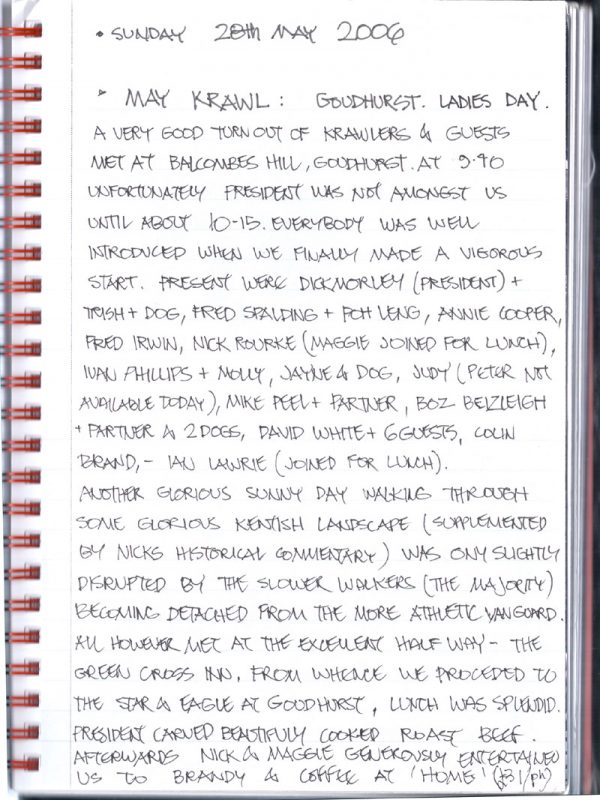 • SUNDAY 28th MAY 2006
▸ MAY KRAWL: GOUDHURST. LADIES DAY.
A VERY GOOD TURNOUT OF KRAWLERS & GUESTS
MET AT BALCOMBES HILL, GOUDHURST. AT 9.40
UNFORTUNATELY PRESIDENT WAS NOT AMONGST US
UNTIL ABOUT 10-15. EVERYBODY WAS WELL
INTRODUCED WHEN WE FINALLY MADE A VIGOROUS
START. PRESENT WERE DICK MORLEY (PRESIDENT) +
TRISH + DOG, FRED SPALDING + POH LENG, ANNIE COOPER,
FRED IRWIN, NICK ROURKE (MAGGIE JOINED FOR LUNCH),
IVAN PHILLIPS + MOLLY, JAYNE & DOG, JUDY (PETER NOT
AVAILABLE TODAY), MIKE PEEL + PARTNER, BOZ BELZLEIGH
+ PARTNER & 2 DOGS, DAVID WHITE + 6 GUESTS, COLIN
BRAND, - IAN LAWRIE (JOINED FOR LUNCH).
ANOTHER GLORIOUS SUNNY DAY WALKING THROUGH
SOME GLORIOUS KENTISH LANDSCAPE (SUPPLEMENTED
BY NICKS HISTORICAL COMMENTARY) WAS ONY SLIGHTLY
DISRUPTED BY THE SLOWER WALKERS (THE MAJORITY)
BECOMING DETACHED FROM THE MORE ATHLETIC VANGUARD.
ALL HOWEVER MET AT THE EXCELLENT HALF WAY - THE
GREEN CROSS INN, FROM WHENCE WE PROCEDED TO
THE STAR & EAGLE AT GOODHURST, LUNCH WAS SPLENDID.
PRESIDENT CARVED BEAUTIFULY COOKED ROAST BEEF.
AFTERWARDS NICK & MAGGIE GENEROUSLY ENTERTAINED
US TO BRANDY & COFFEE AT 'HOME' (